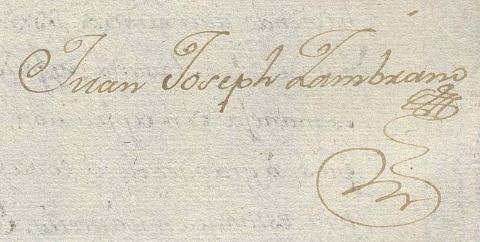 Juan Joseph Zambrano